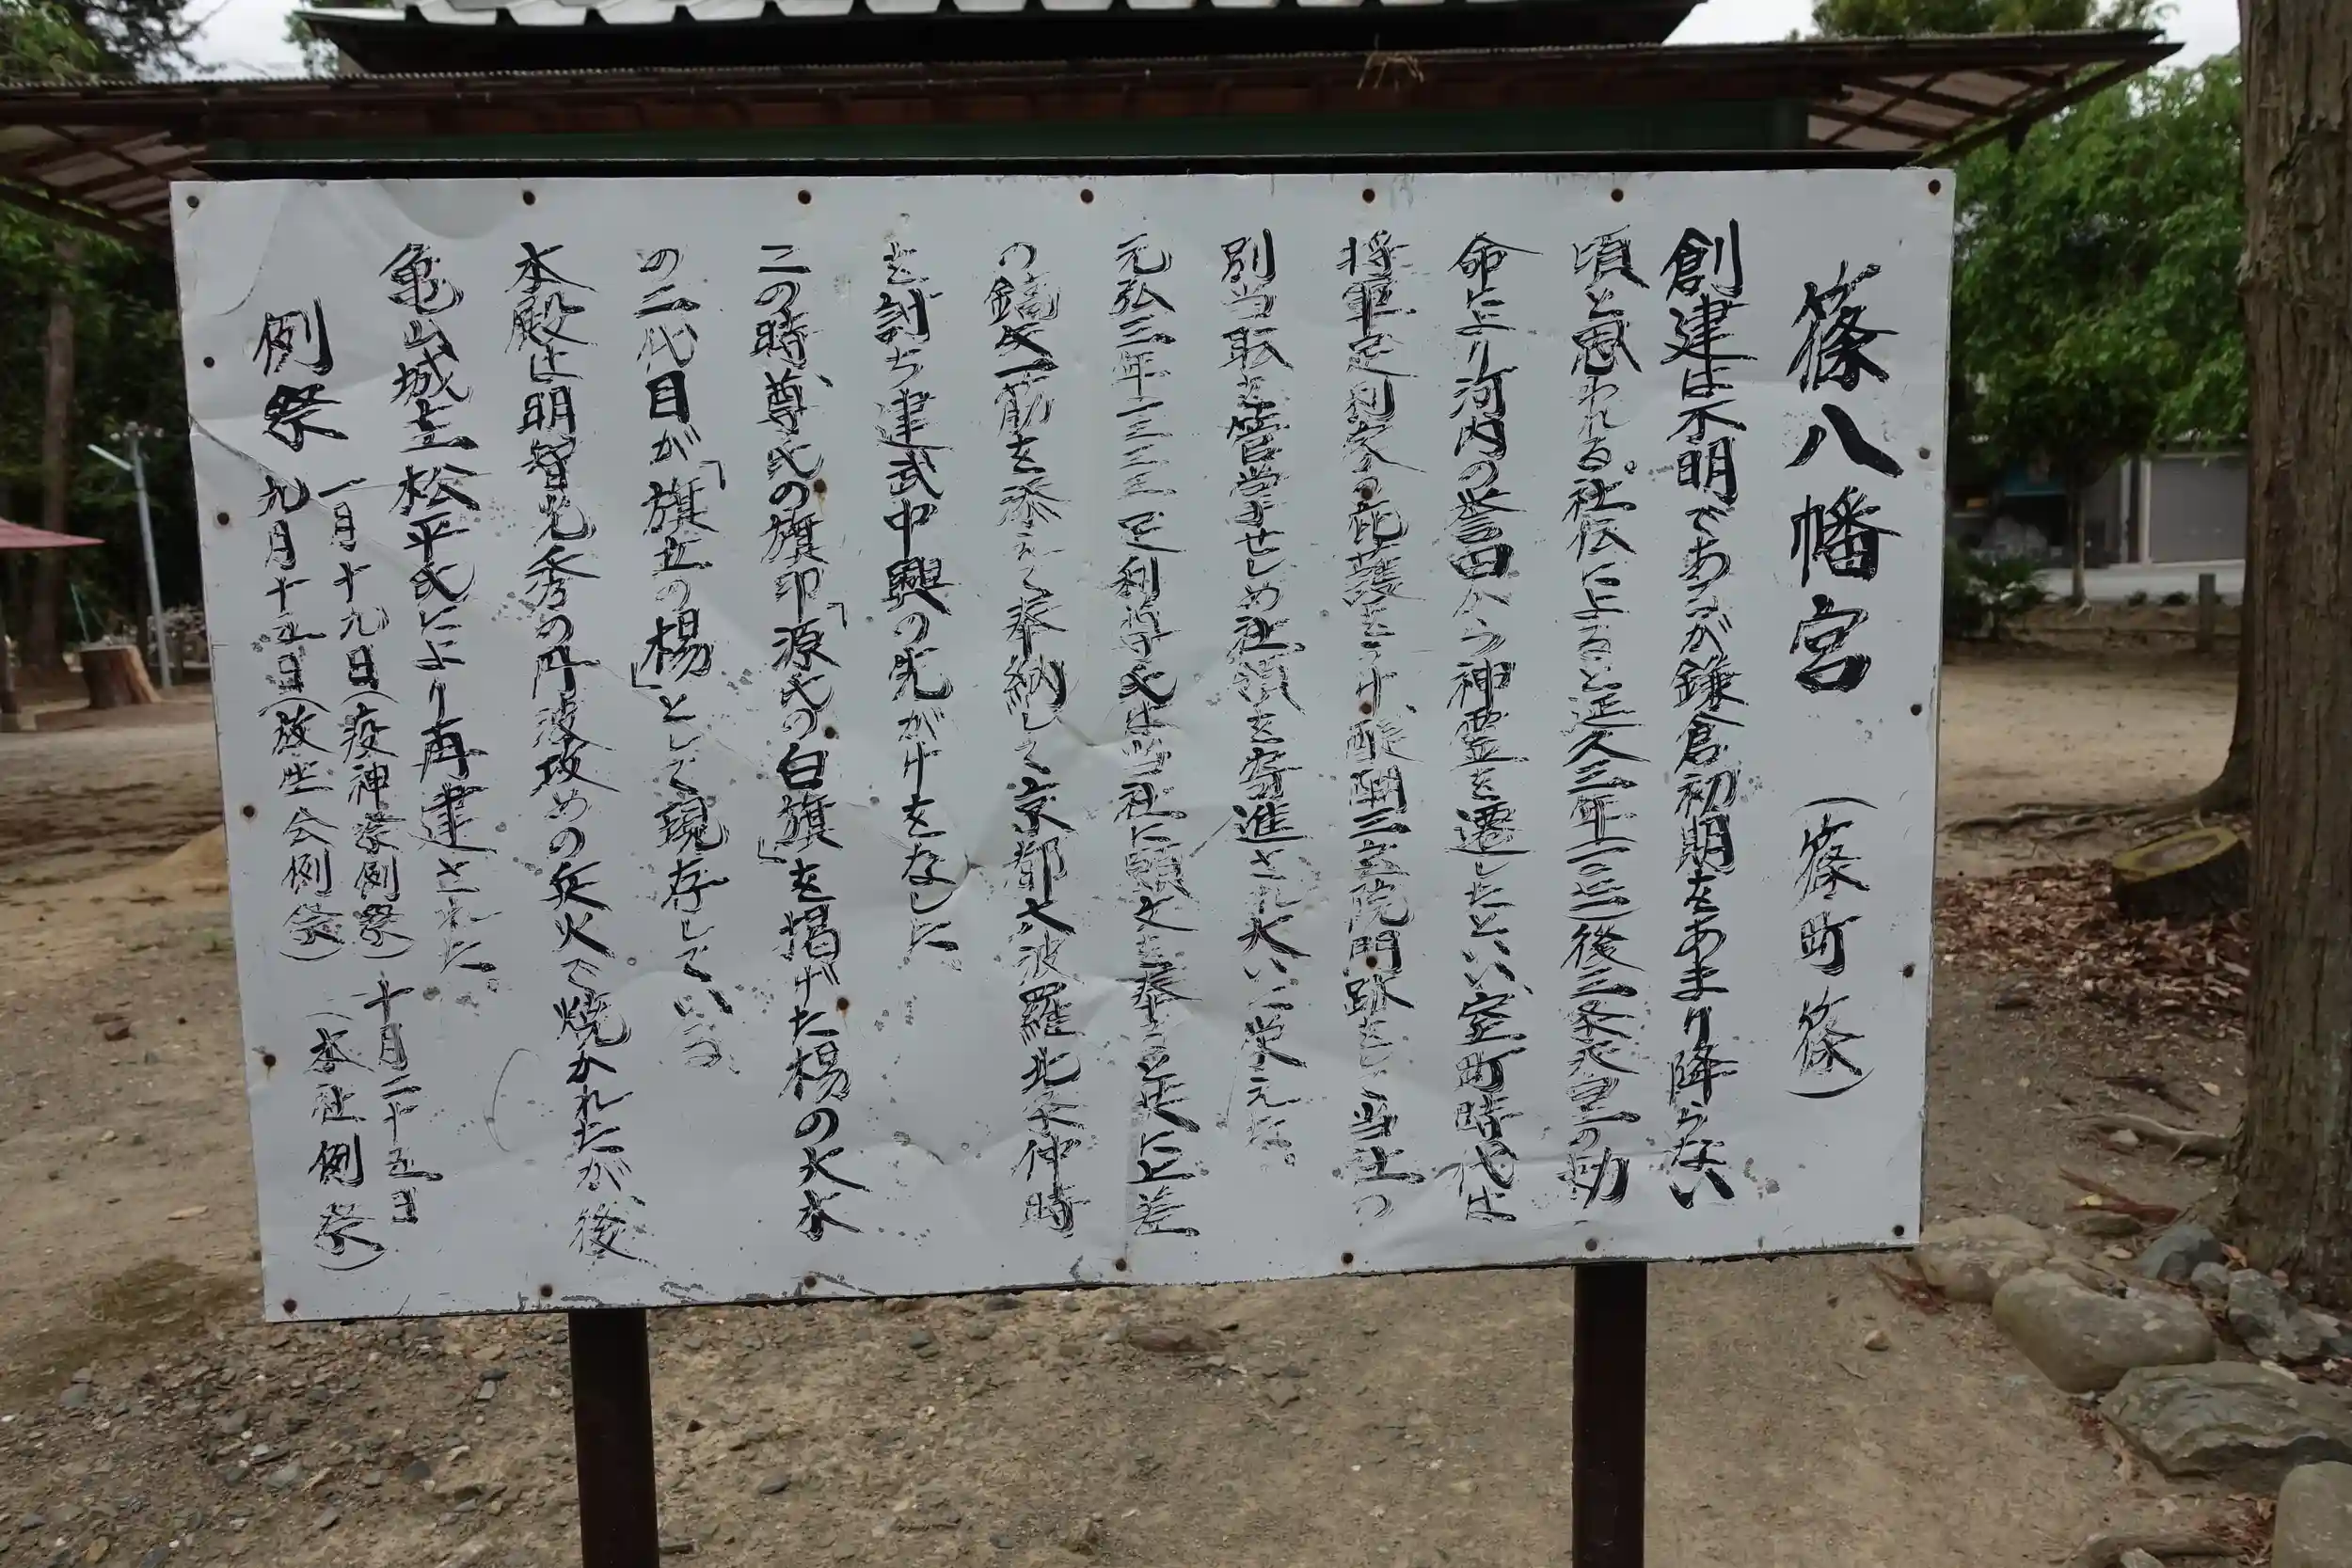 篠八幡宮 (篠町 篠)
創建は不明であるが鎌倉初期をあまり降らない
頃と思われる。社伝によると延久三年(一〇七一)後三条天皇の勅
命により河内の誉田から神霊を遷したといい、室町時代は
将軍足利家の庇護をうけ、醍醐三宝院門跡をして当社の
別当職を管掌せしめ社領を寄進され大いに栄えた。
元弘三年一三三三 足利尊氏は当社に願文を奉ると共に差
の鏑矢一筋を添えて奉納して京都六波羅北条仲時
を討ち建武中興の先がけをなした。
この時、尊氏の旗印「源氏の白旗」を掲げた楊の大木
の二代目が「旗立の楊」として現存している。
本殿は明智光秀の丹波攻めの兵火で焼かれたが、後
亀山城主松平氏により再建された。
例祭 一月十九日(疫神祭例祭) 十月二十五日
九月十五日(放生会例祭) (本社例祭)